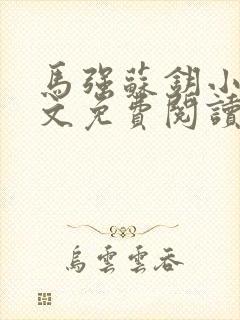 馬強蘇鈅小
文免費閱讀
烏雲雲吞